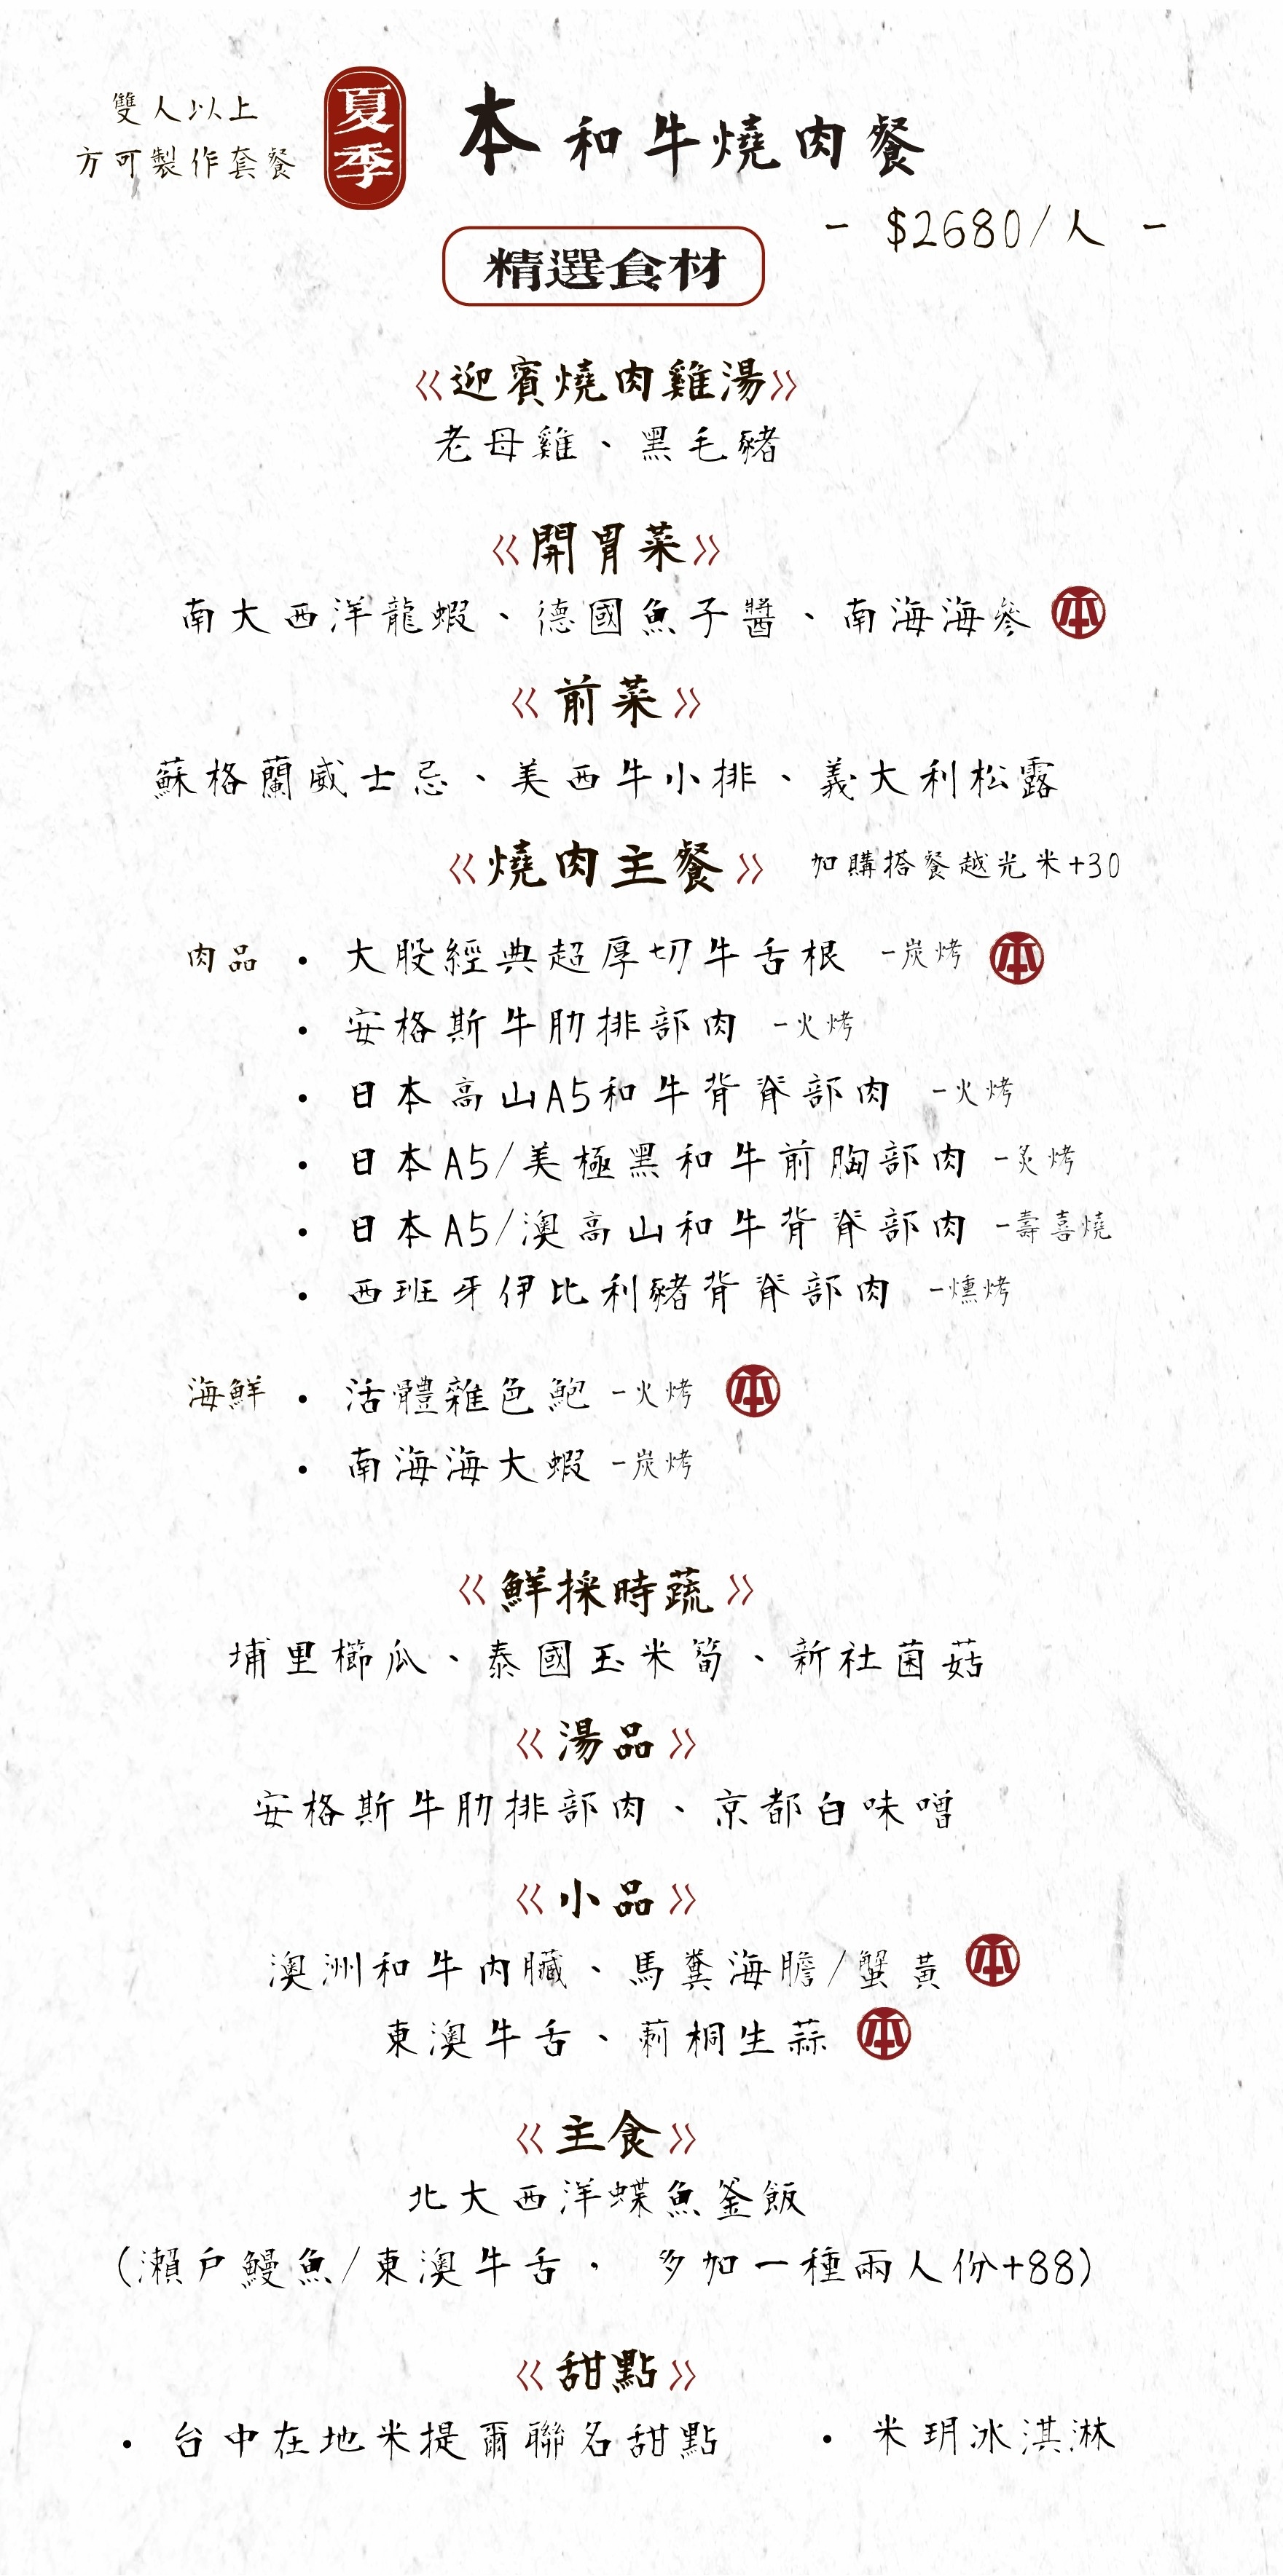 雙人以上
方可製作套餐
夏季
本和牛燒肉餐
- $2680/人 -
精選食材
《迎賓燒肉雞湯》
老母雞、黑毛豬
《開胃菜》
南大西洋龍蝦、德國魚子醬、南海海參 本
《前菜》
蘇格蘭威士忌、美西牛小排、義大利松露
《燒肉主餐》 加購搭餐越光米+30
肉品 • 大股經典超厚切牛舌根 -炭烤 本
• 安格斯牛肋排部肉 -火烤
• 日本高山A5和牛背脊部肉 -火烤
• 日本A5/美極黑和牛前胸部肉 -炙烤
• 日本A5/澳高山和牛背脊部肉 -壽喜燒
• 西班牙伊比利豬背脊部肉 -燻烤
海鮮 • 活體雜色鮑 -火烤 本
• 南海海大蝦 -炭烤
《鮮採時蔬》
埔里櫛瓜、泰國玉米筍、新社菌菇
《湯品》
安格斯牛肋排部肉、京都白味噌
《小品》
澳洲和牛內臟、馬糞海膽/蟹黃 本
東澳牛舌、莿桐生蒜 本
《主食》
北大西洋蝶魚釜飯
(瀨戶鰻魚/東澳牛舌， 多加一種兩人份+88)
《甜點》
• 台中在地米提爾聯名甜點 • 米玥冰淇淋